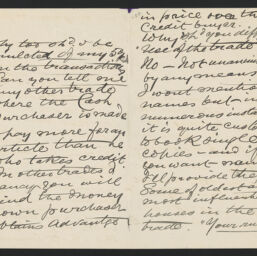 too shd. be
mulcted of my 5%
in the transaction
Can you tell me
any other trade
where the Cash
purchaser is made
to pay more for an
article than he
who takes credit.
In other trades I
fancy you will
find the money
down purchaser
obtains advantage
in price over the
Credit buyer.
Why shd. you differ
of the trade
No – Not unanimous
by any means
I won't mention
names but in
numerous instances
it is quite customary
to book single
copies – and if
you want names
I'll provide them
Some of oldest &
most influential
houses in the
trade. "Your